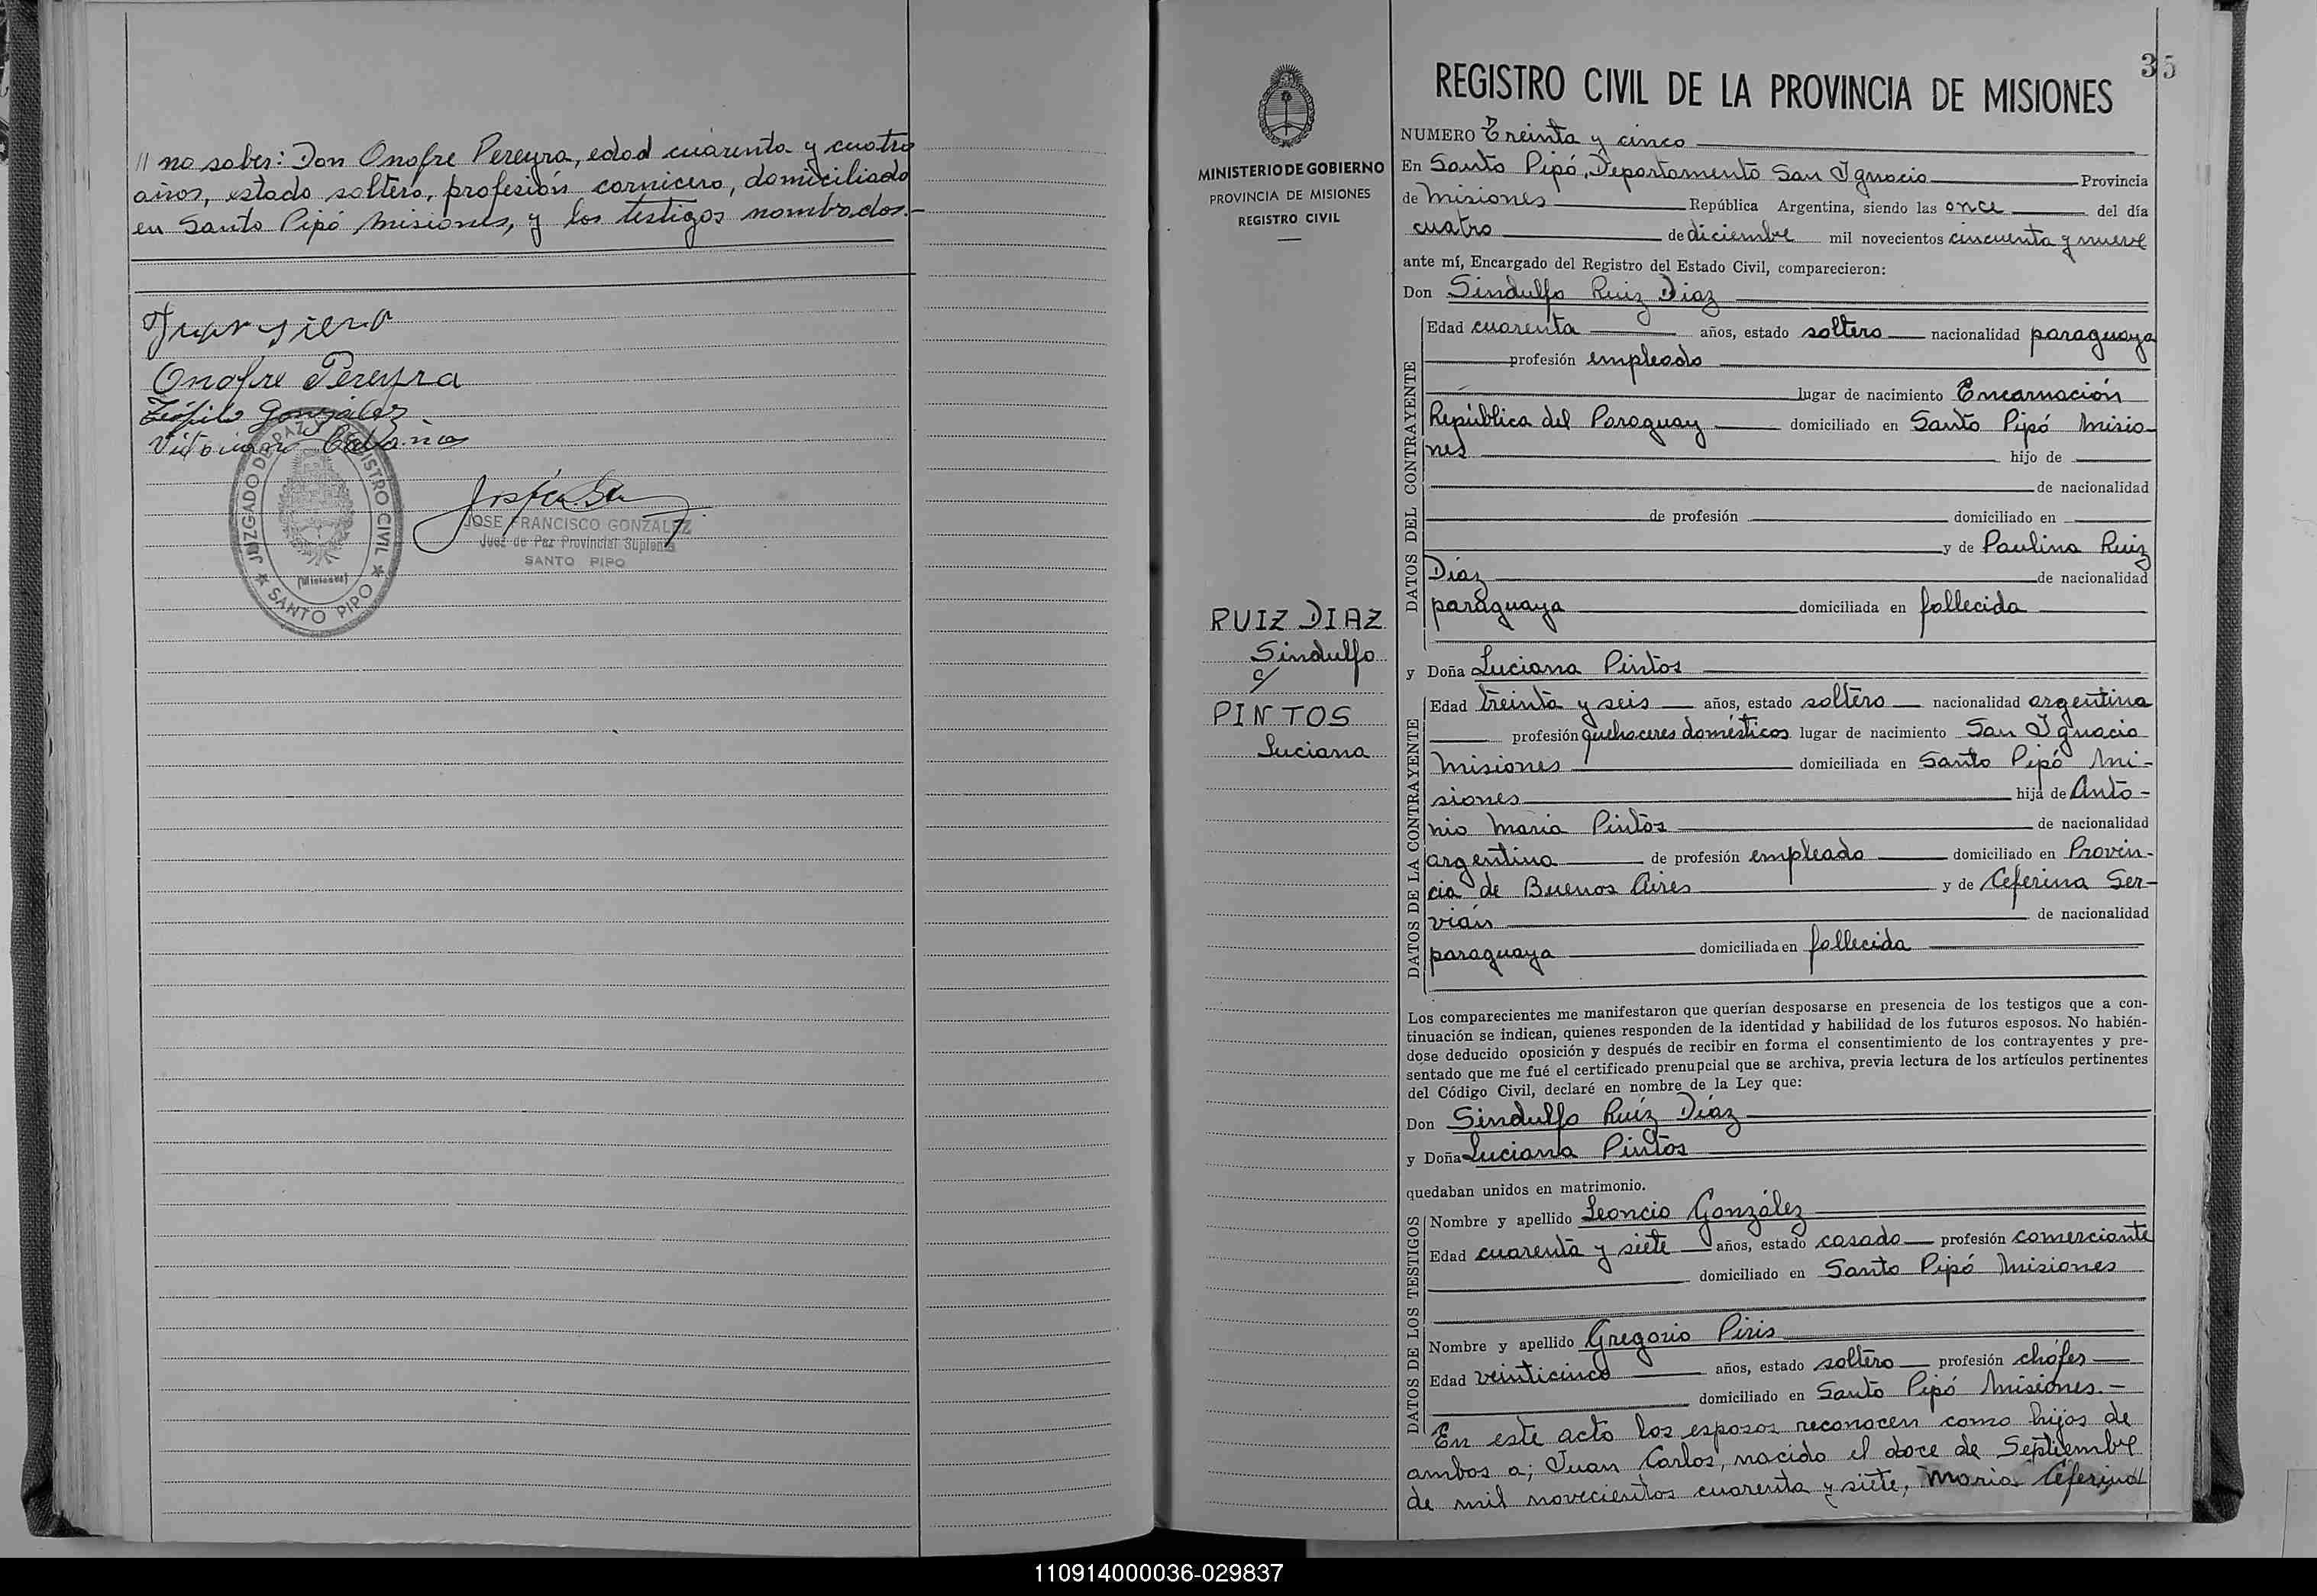 // no saber: Don Onofre Pereyra, edad cuarenta y cuatro
años, estado soltero, profesión carnicero, domiciliado
en Santo Pipó Misiones, y los testigos nombrados.-
Onofre Pereyra
Teófilo González
JUZGADO DE PAZ REGISTRO CIVIL
(Misiones)
SANTO PIPO
JOSE FRANCISCO GONZALEZ
Juez de Paz Provincial Suplente
SANTO PIPO
MINISTERIO DE GOBIERNO
PROVINCIA DE MISIONES
REGISTRO CIVIL
RUIZ DIAZ
Sindulfo
c/
PINTOS
Luciana
35
REGISTRO CIVIL DE LA PROVINCIA DE MISIONES
NUMERO Treinta y cinco
En Santo Pipó, Departamento San Ignacio Provincia
de Misiones República Argentina, siendo las once del día
cuatro de diciembre mil novecientos cincuenta y nueve
ante mí, Encargado del Registro del Estado Civil, comparecieron:
Don Sindulfo Ruiz Diaz
DATOS DEL CONTRAYENTE
Edad cuarenta años, estado soltero nacionalidad paraguaya
profesión empleado
lugar de nacimiento Encarnación
República del Paraguay domiciliado en Santo Pipó Misio-
nes hijo de
de nacionalidad
de profesión domiciliado en
y de Paulina Ruiz
Diaz de nacionalidad
paraguaya domiciliada en fallecida
y Doña Luciana Pintos
DATOS DE LA CONTRAYENTE
Edad treinta y seis años, estado soltero nacionalidad argentina
profesión quehaceres domésticos lugar de nacimiento San Ignacio
Misiones domiciliada en Santo Pipó Mi-
siones hija de Anto-
nio Maria Pintos de nacionalidad
argentina de profesión empleado domiciliado en Provin-
cia de Buenos Aires y de Ceferina Ser-
vián de nacionalidad
paraguaya domiciliada en fallecida
Los comparecientes me manifestaron que querían desposarse en presencia de los testigos que a con-
tinuación se indican, quienes responden de la identidad y habilidad de los futuros esposos. No habién-
dose deducido oposición y después de recibir en forma el consentimiento de los contrayentes y pre-
sentado que me fué el certificado prenupcial que se archiva, previa lectura de los artículos pertinentes
del Código Civil, declaré en nombre de la Ley que:
Don Sindulfo Ruíz Díaz
y Doña Luciana Pintos
quedaban unidos en matrimonio.
DATOS DE LOS TESTIGOS
Nombre y apellido Leoncio González
Edad cuarenta y siete años, estado casado profesión comerciante
domiciliado en Santo Pipó Misiones
Nombre y apellido Gregorio Piris
Edad veinticinco años, estado soltero profesión chófer
domiciliado en Santo Pipó Misiones.-
En este acto los esposos reconocen como hijos de
ambos a; Juan Carlos, nacido el doce de Septiembre
de mil novecientos cuarenta y siete, Maria Ceferina
110914000036-029837